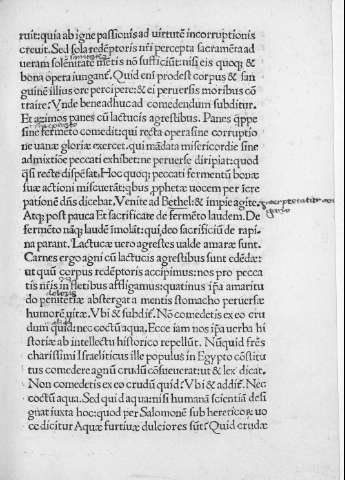 ruit: quia ab igne passionis ad uirtutē incorruptionis
creuit. Sed sola redēptoris nr̄i percepta sacramēta ad
ueram solēnitatē mētis nō sufficiūt: nisi eis quoq; &
bona opera iungant̄. Quid eni prodest corpus & san
guinē illius ore percipere: & ei peruersis moribus cō
traire? Vnde bene adhuc ad comedendum subditur.
Et azimos panes cū lactucis agrestibus. Panes q̄ppe
sine fermēto comedit: qui recta opera sine corruptio
ne uanæ gloriæ exercet. qui mādata misericordie sine
admixtiōe peccati exhibet: ne peruerse diripiat: quod
q̄si recte dispēsat. Hoc quoq; peccati fermentū bonæ
suæ actioni miscuerāt: qbus, pphetæ uocem per īcre
patione dn̄s dicebat. Venite ad Bethel: & impie agite.
Atq; post pauca Et sacrificate de fermēto laudem. De
fermēto nāq; laudē imolāt: qui deo sacrificiū de rapi-
na parant. Lactucæ uero agrestes ualde amaræ sunt.
Carnes ergo agni cū lactucis agrestibus sunt edēdæ:
ut quū corpus redēptoris accipimus: nos pro pecca
tis nr̄is in fletibus affligamus: quatinus ip̄a amaritu
do penitētiæ abstergat a mentis stomacho peruersæ
humorē uitæ. Vbi & subdit̄. Nō comedetis ex eo cru
dum quid: nec coctū aqua. Ecce iam nos ip̄a uerba hi
storiæ ab intellectu historico repellūt. Nūquid fr̄es
charissimi Israeliticus ille populus in Egypto cōstitu
tus comedere agnū crudū cōsueuerat: ut & lex dicat.
Non comedetis ex eo crudū quid? Vbi & addit̄. Nec
coctū aqua. Sed qui d aqua: nisi humanā scientiā desi
gnat iuxta hoc: quod per Salomonē sub hereticoꝝ uo
ce dicitur Aquæ furtiuæ dulciores sūt? Quid crudæ